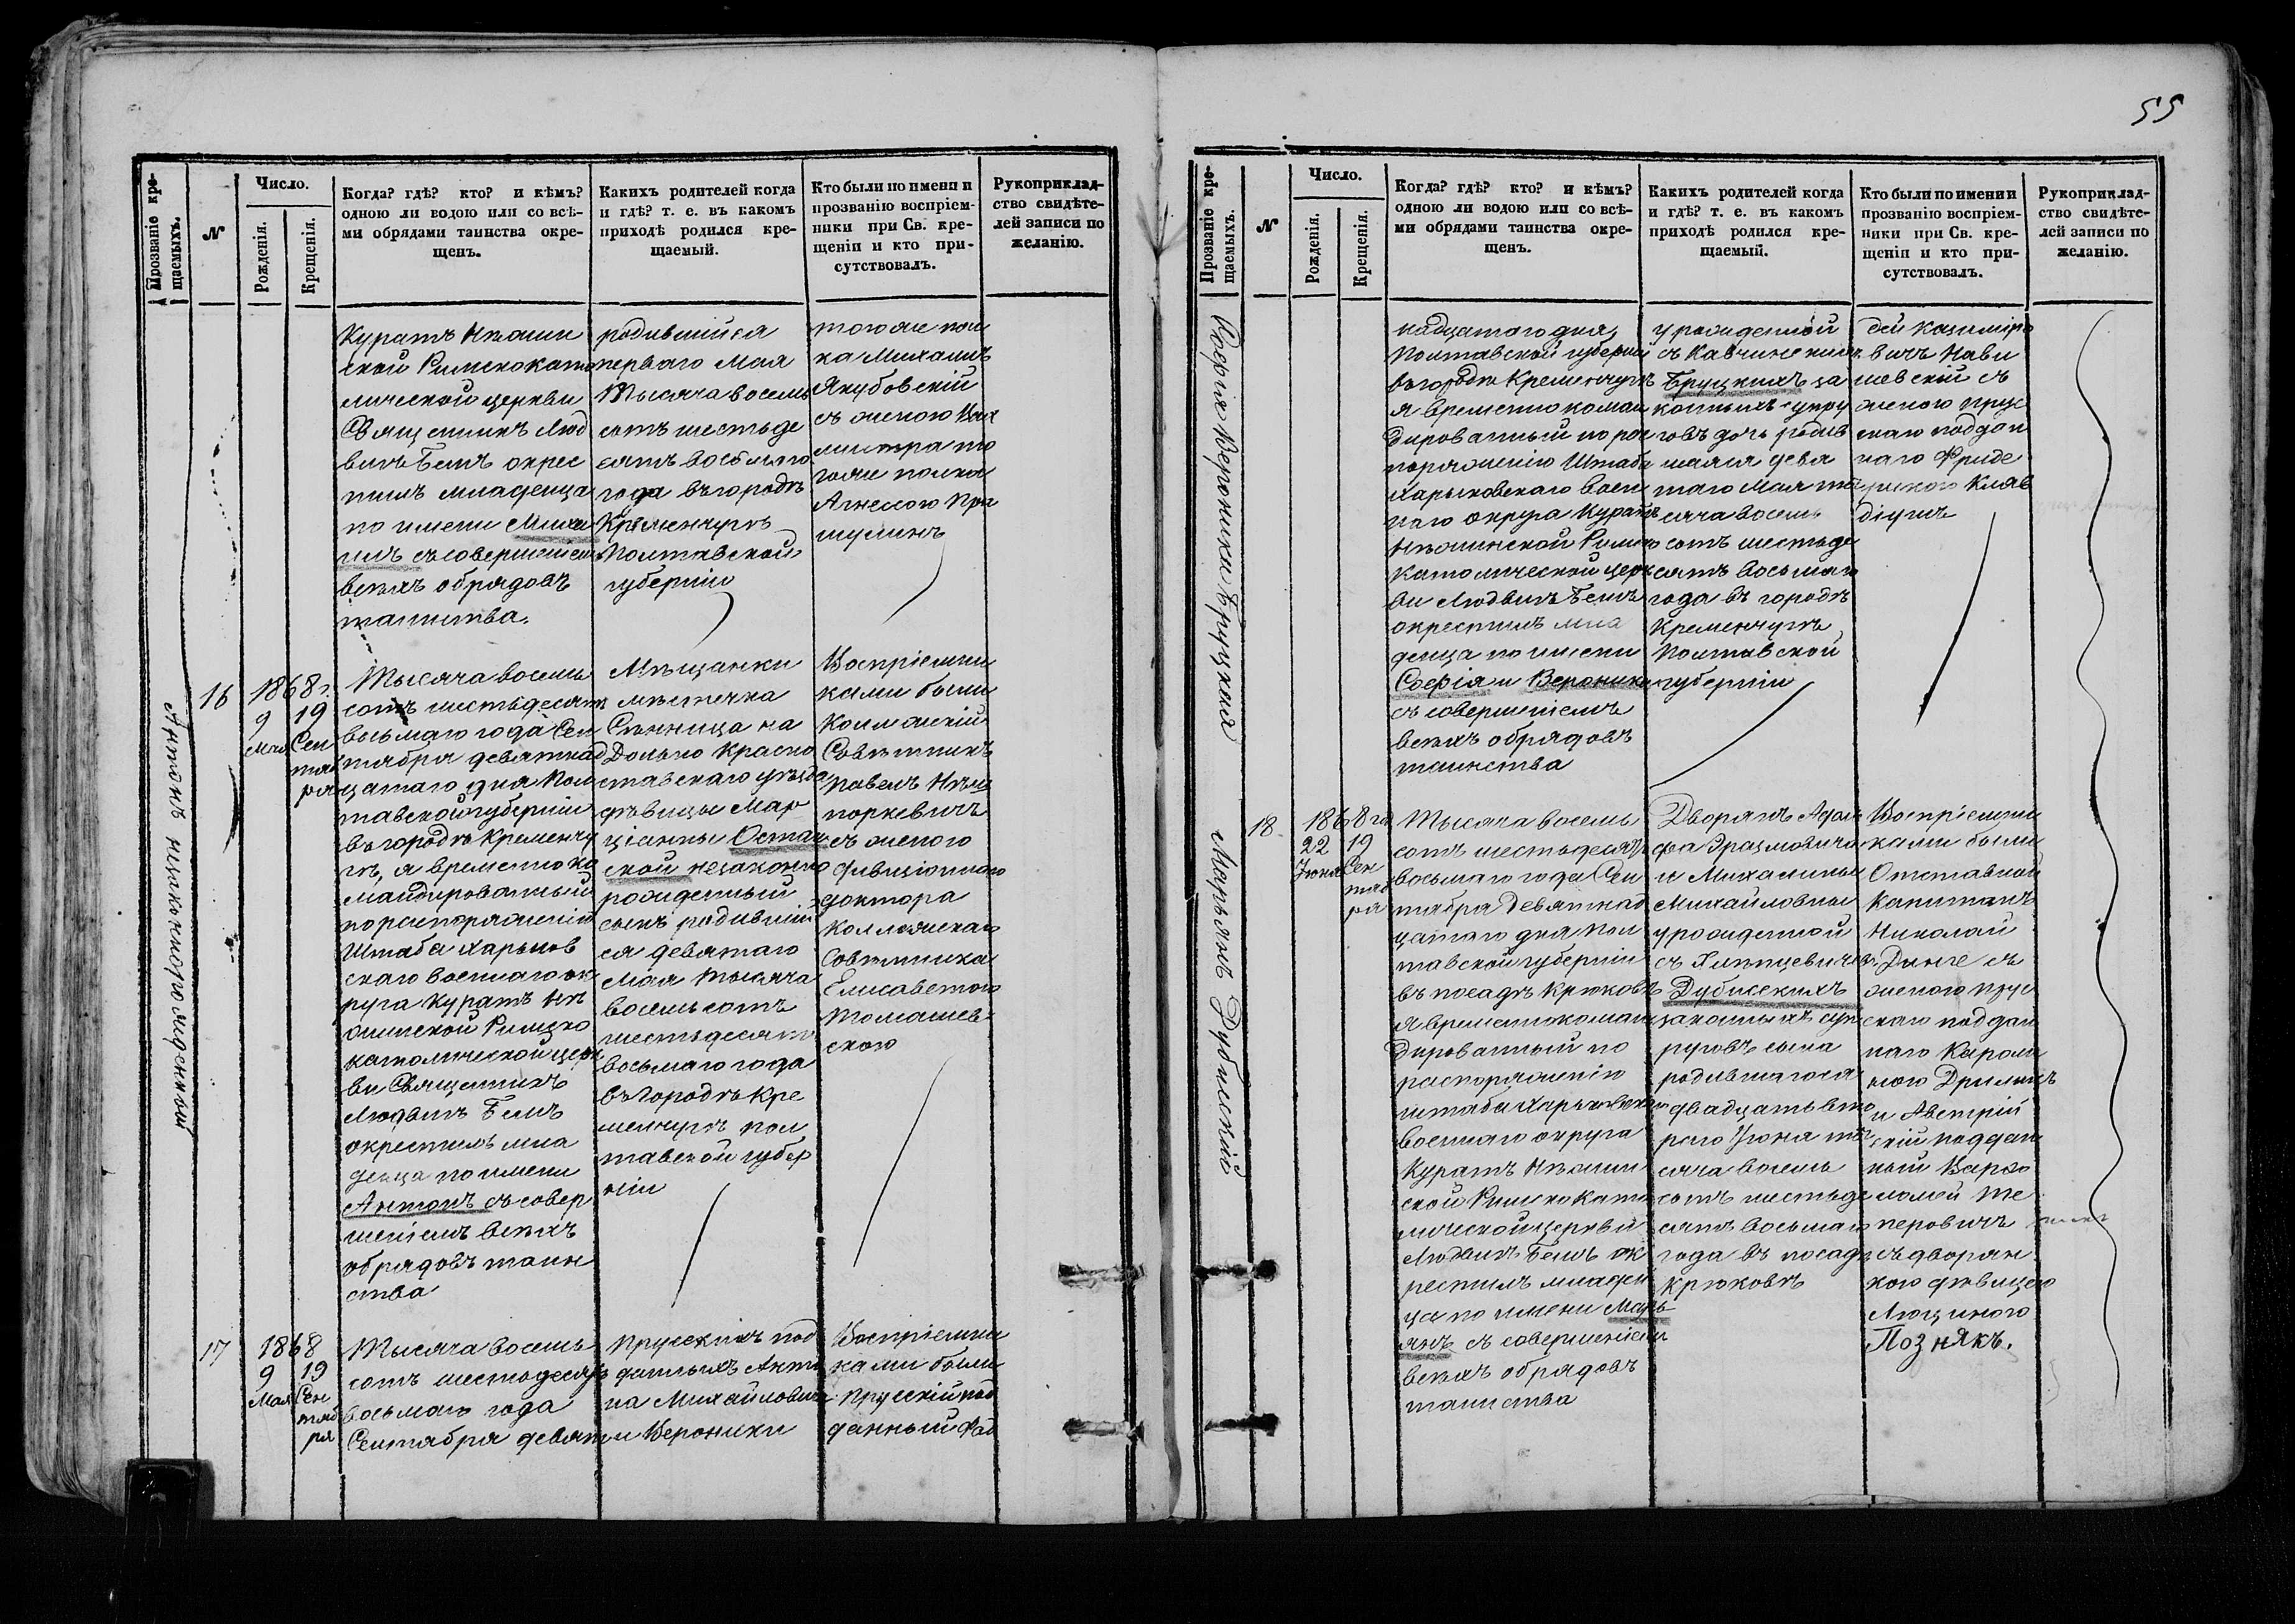 55
Прозваніе кре-
щаемыхъ.
N
Число.
Рожденія.
Крещенія.
Когда? гдѣ? кто? и кѣмъ?
одною ли водою или со всѣ-
ми обрядами таинства окре-
щенъ.
Какихъ родителей когда
и гдѣ? т. е. въ какомъ
приходѣ родился кре-
щаемый.
Кто были по имени и
прозванію воспріем-
ники при Св. кре-
щеніи и кто при-
сутствовалъ.
Рукоприклад-
ство свидѣте-
лей записи по
желанію.
Куратъ Нѣжин
ской Римскокато
лической церкви
Священникъ Люд
викъ Бемъ окрес
тилъ младенца
по имени Миха
илъ съ совершеніемъ
всѣхъ обрядовъ
таинства.
родившійся
перваго Мая
Тысяча восемь
сотъ шестьде
сятъ восьмого
года въ городѣ
Кременчугѣ
Полтавской
губерніи
того же пол
ка Михаилъ
Якубовскій
съ женою
го же полка
Агнессою
Антонъ незаконнорожденный
16
1868 г.
9
Мая
19
Сен
тяб
ря
Тысяча восемь
сотъ шестьдесятъ
восьмаго года Сен
тября девятнад
цатаго дня Пол
тавской губерніи
въ городѣ Кременчу
гѣ, я временно ко
мандированный
по распоряженію
Штаба Харьков
скаго военнаго ок
руга Куратъ Нѣ
жинской Римско
католической церк
ви Священникъ
Людвигъ Бемъ
окрестилъ мла
денца по имени
Антонъ съ совер
шеніемъ всѣхъ
обрядовъ таин
ства
Мѣщанки
мѣстечка
Сѣнница на
Дольно Красно
ставскаго уѣзда
дѣвицы Мар
ціанны
ской незаконно
рожденный
сынъ родившій
ся девятаго
Мая тысяча
восемьсотъ
шестьдесятъ
восьмаго года
въ Городѣ Кре
менчугѣ Пол
тавской губер
ніи
Воспріемни
ками были
Коллежскій
Совѣтникъ
Павелъ
съ женою
дивизіоннаго
доктора
Коллежскаго
Совѣтника
Елисаветою
Томашев
скою
17
1868
9
Мая
19
Сен
тяб
ря
Тысяча восемь
сотъ шестьдесятъ
восьмаго года
Сентября девят
Прусскихъ под
данныхъ Анто
на Михайловича
и Вероники
Воспріемни
ками были
Прусскій под
данный Фад
Прозваніе кре-
щаемыхъ.
N
Число.
Рожденія.
Крещенія.
Когда? гдѣ? кто? и кѣмъ?
одною ли водою или со всѣ-
ми обрядами таинства окре-
щенъ.
Какихъ родителей когда
и гдѣ? т. е. въ какомъ
приходѣ родился кре-
щаемый.
Кто были по имени и
прозванію воспріем-
ники при Св. кре-
щеніи и кто при-
сутствовалъ.
Рукоприклад-
ство свидѣте-
лей записи по
желанію.
Софія Вероника Бруцкая
надцатаго дня,
Полтавской губерніи
въ городѣ Кременчугѣ
я временно коман
дированный по рас
поряженію Штаба
Харьковскаго воен
наго округа Куратъ
Нѣжинской Римско
католической церк
ви Людвигъ Бемъ
окрестилъ мла
денца по имени
Софія и Вероника
съ совершеніемъ
всѣхъ обрядовъ
таинства
урожденной
съ Кавчинскихъ
Бруцкихъ за
конныхъ супру
говъ дочь родив
шаяся девя
таго Мая ты
сяча восемь
сотъ шестьде
сятъ восьмаго
года въ городѣ
Кременчугѣ
Полтавской
губерніи
дей Казиміро
вичъ Нави
шевскій съ
женою прус
скаго поддан
наго Фриде
риха Клав
діушъ
Марьянъ Дубискій
18
1868 го
22
Іюня
19
Сен
тяб
ря
Тысяча восемь
сотъ шестьдесятъ
восьмаго года Сен
тября Девятнад
цатаго дня Пол
тавской губерніи
въ посадѣ Крюковѣ
я временно коман
дированный по
распоряженію
штаба Харьковскаго
военнаго округа
Куратъ Нѣжин
ской Римско Като
лической церкви
Людвигъ Бемъ ок
рестилъ младен
ца по имени Марь-
янъ съ совершеніемъ
всѣхъ обрядовъ
таинства
Дворянъ Адоль
фа Эразмовича
и Михалины
Михайловны
урожденной
Дубискихъ
законныхъ суп
руговъ сына
родившагося
двадцать вто
раго Іюня ты
сяча восемь
сотъ шестьде
сятъ восьмаго
года въ посадѣ
Крюковѣ
Воспріемни
ками были
Отставной
Капитанъ
Николай
Динге съ
женою прус
скаго поддан
наго Кароли
ною
и Австрій
скій поддан
ный Варфо
ломей Те
перовичъ
съ дворян
кою дѣвицею
Люциною
Познякъ.